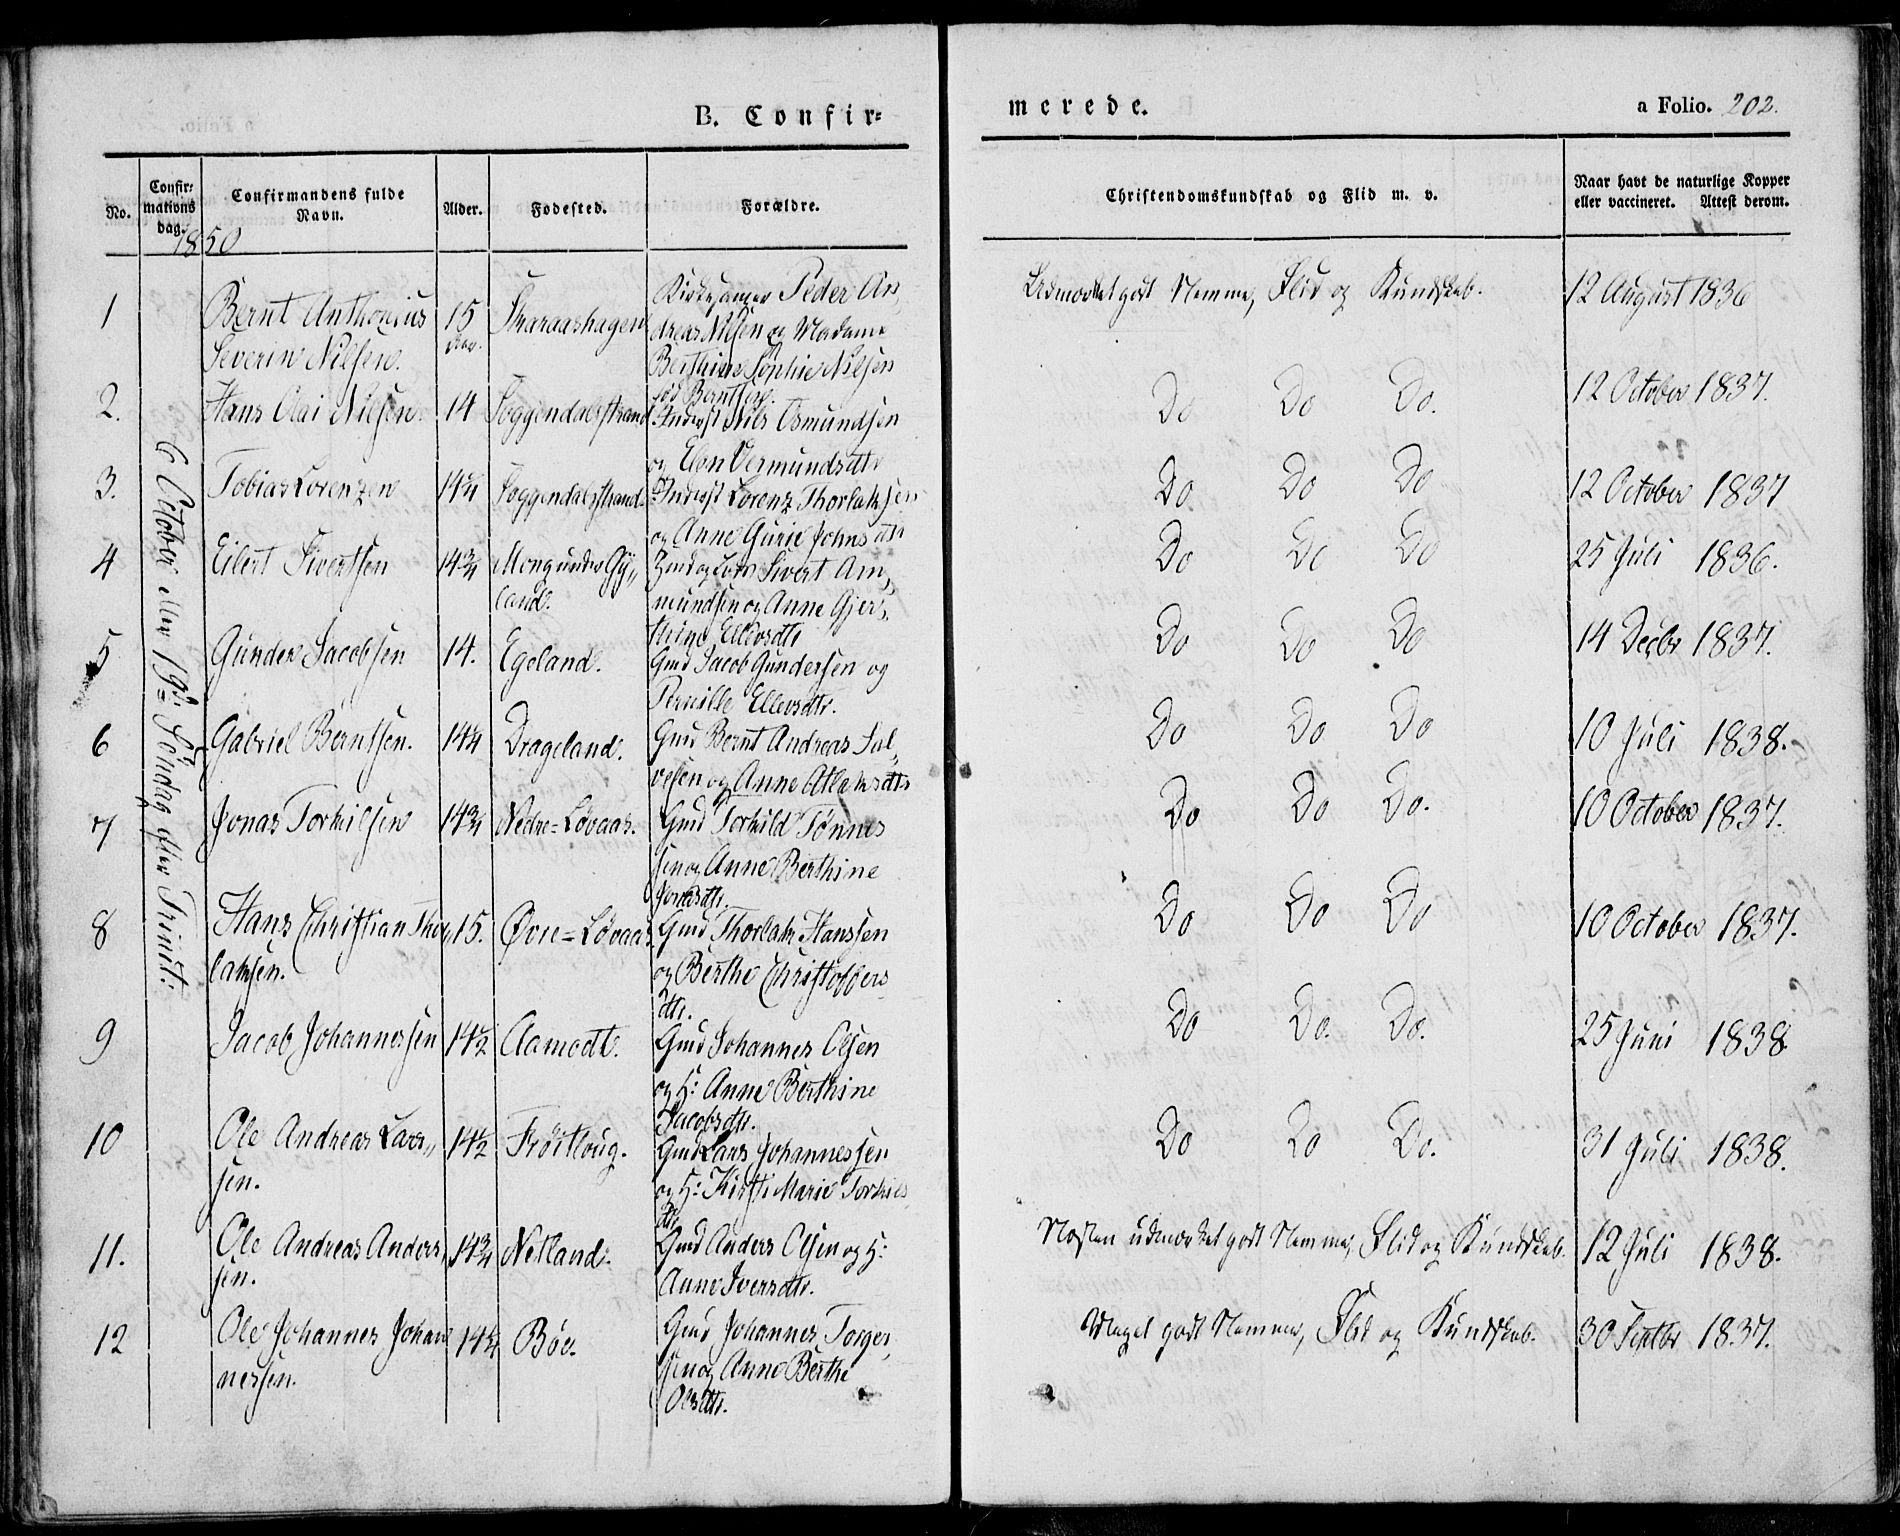 B. Confir=
merede.
a Folio. 202.
No.
Confir=
mations
dag.
Confirmandens fulde
Navn.
Alder.
Fødested.
Forældre.
Christendomskundskab og Flid m. v.
Naar havt de naturlige Kopper
eller vaccineret. Attest derom.
1850
6 October eller 19de Søndag efter Trinit:
1
Bernt Anthonius
Severin Nilsen.
15
Skaraashagen
Kirkesanger Peder An„
dreas Nilsen og Madame
Berthine Sophie Nilsen
fød Berntsen.
Udmærket godt Nemme, Flid og Kundskab.
12 August 1836
2.
Hans Olai Nilsen
14
Soggendalsstrand
Inderst Nils Osmundsen
og Elen Vermundsdtr
Do Do Do.
12 October 1837.
3.
Tobias Lorenzen
14 1/4
Soggendalsstrand
Inderst Lorenz Thorlaksen
og Anne Gurie Johnsdtr
Do Do Do
12 October 1837
4
Eilert Sivertsen
14 3/4
Mong under Gy„
land.
Sivert Am„
mundsen og Anne Gjer„
thrine Ellevsdtr
Do Do Do
25 Juli 1836.
5
Gunder Jacobsen
14.
Egeland.
Gmd Jacob Gundersen og
Pernille Ellevsdtr.
Do Do Do
14 Decbr 1837.
6
Gabriel Berntsen.
14 1/4
Drageland.
Gmd Bernt Andreas Sal„
vesen og Anne Atlaksdtr
Do Do Do
10 Juli 1838.
7
Jonas Torkilsen
14 3/4
Nedre=Løvaas.
Gmd Torkild Tønnes
sen og Anne Berthine
Jonasdtr.
Do Do Do.
10 October 1837.
8
Hans Christian Thor„
laksen.
15.
Øvre=Løvaas.
Gmd Thorlak Hanssen
og Berthe Christoffers
dtr.
Do Do Do
10 October 1837.
9
Jacob Johannessen
14 1/2
Aamodt.
Gmd Johannes Olsen
og H: Anne Berthine
Jacobsdtr.
Do Do. Do.
25 Juni 1838
10
Ole Andreas Lars„
sen.
14 1/2
Frøitloug.
Gmd Lars Johannessen
og H: Kirsti Marie Torkils
dtr
Do Do Do.
31 Juli 1838.
11.
Ole Andreas Anders„
sen.
14 3/4
Netland.
Gmd Anders Olsen og H:
Anne Iversdtr.
Næsten udmærket godt Nemme, Flid og Kundskab.
12 Juli 1838.
12
Ole Johannes Johan
nessen.
14 3/4
Bøe.
Gmd Johannes Torger„
sen og Anne Berthe
Olsdtr.
Meget godt Nemme, Flid og Kundskab.
30 Septbr 1837.